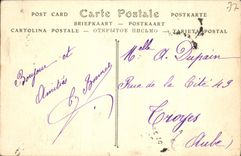 POST CARD Carte Postale POSTKARTE
BRIEFKAART — POSTKAART
CARTOLINA POSTALE — ОТКРЫТОЕ ПИСЬМО — TARJETA POSTAL
37
Bonjour et
Amitiés
Melle A. Dupain
Rue de la Cité 49
Troyes
(Aube)